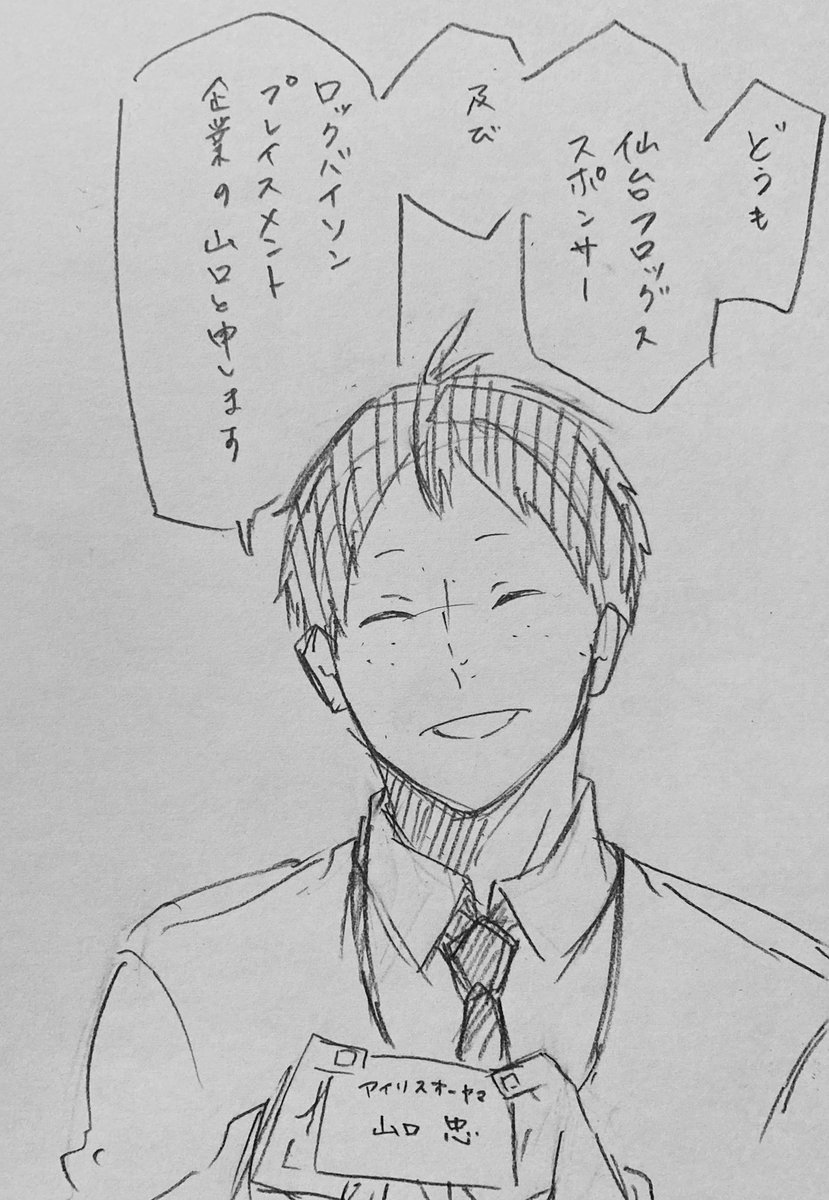 どうも
仙台フロッグス
スポンサー
及び
ロックバイソン
プレイスメント
企業の山口と申します
アイリスオーヤマ
山口 忠